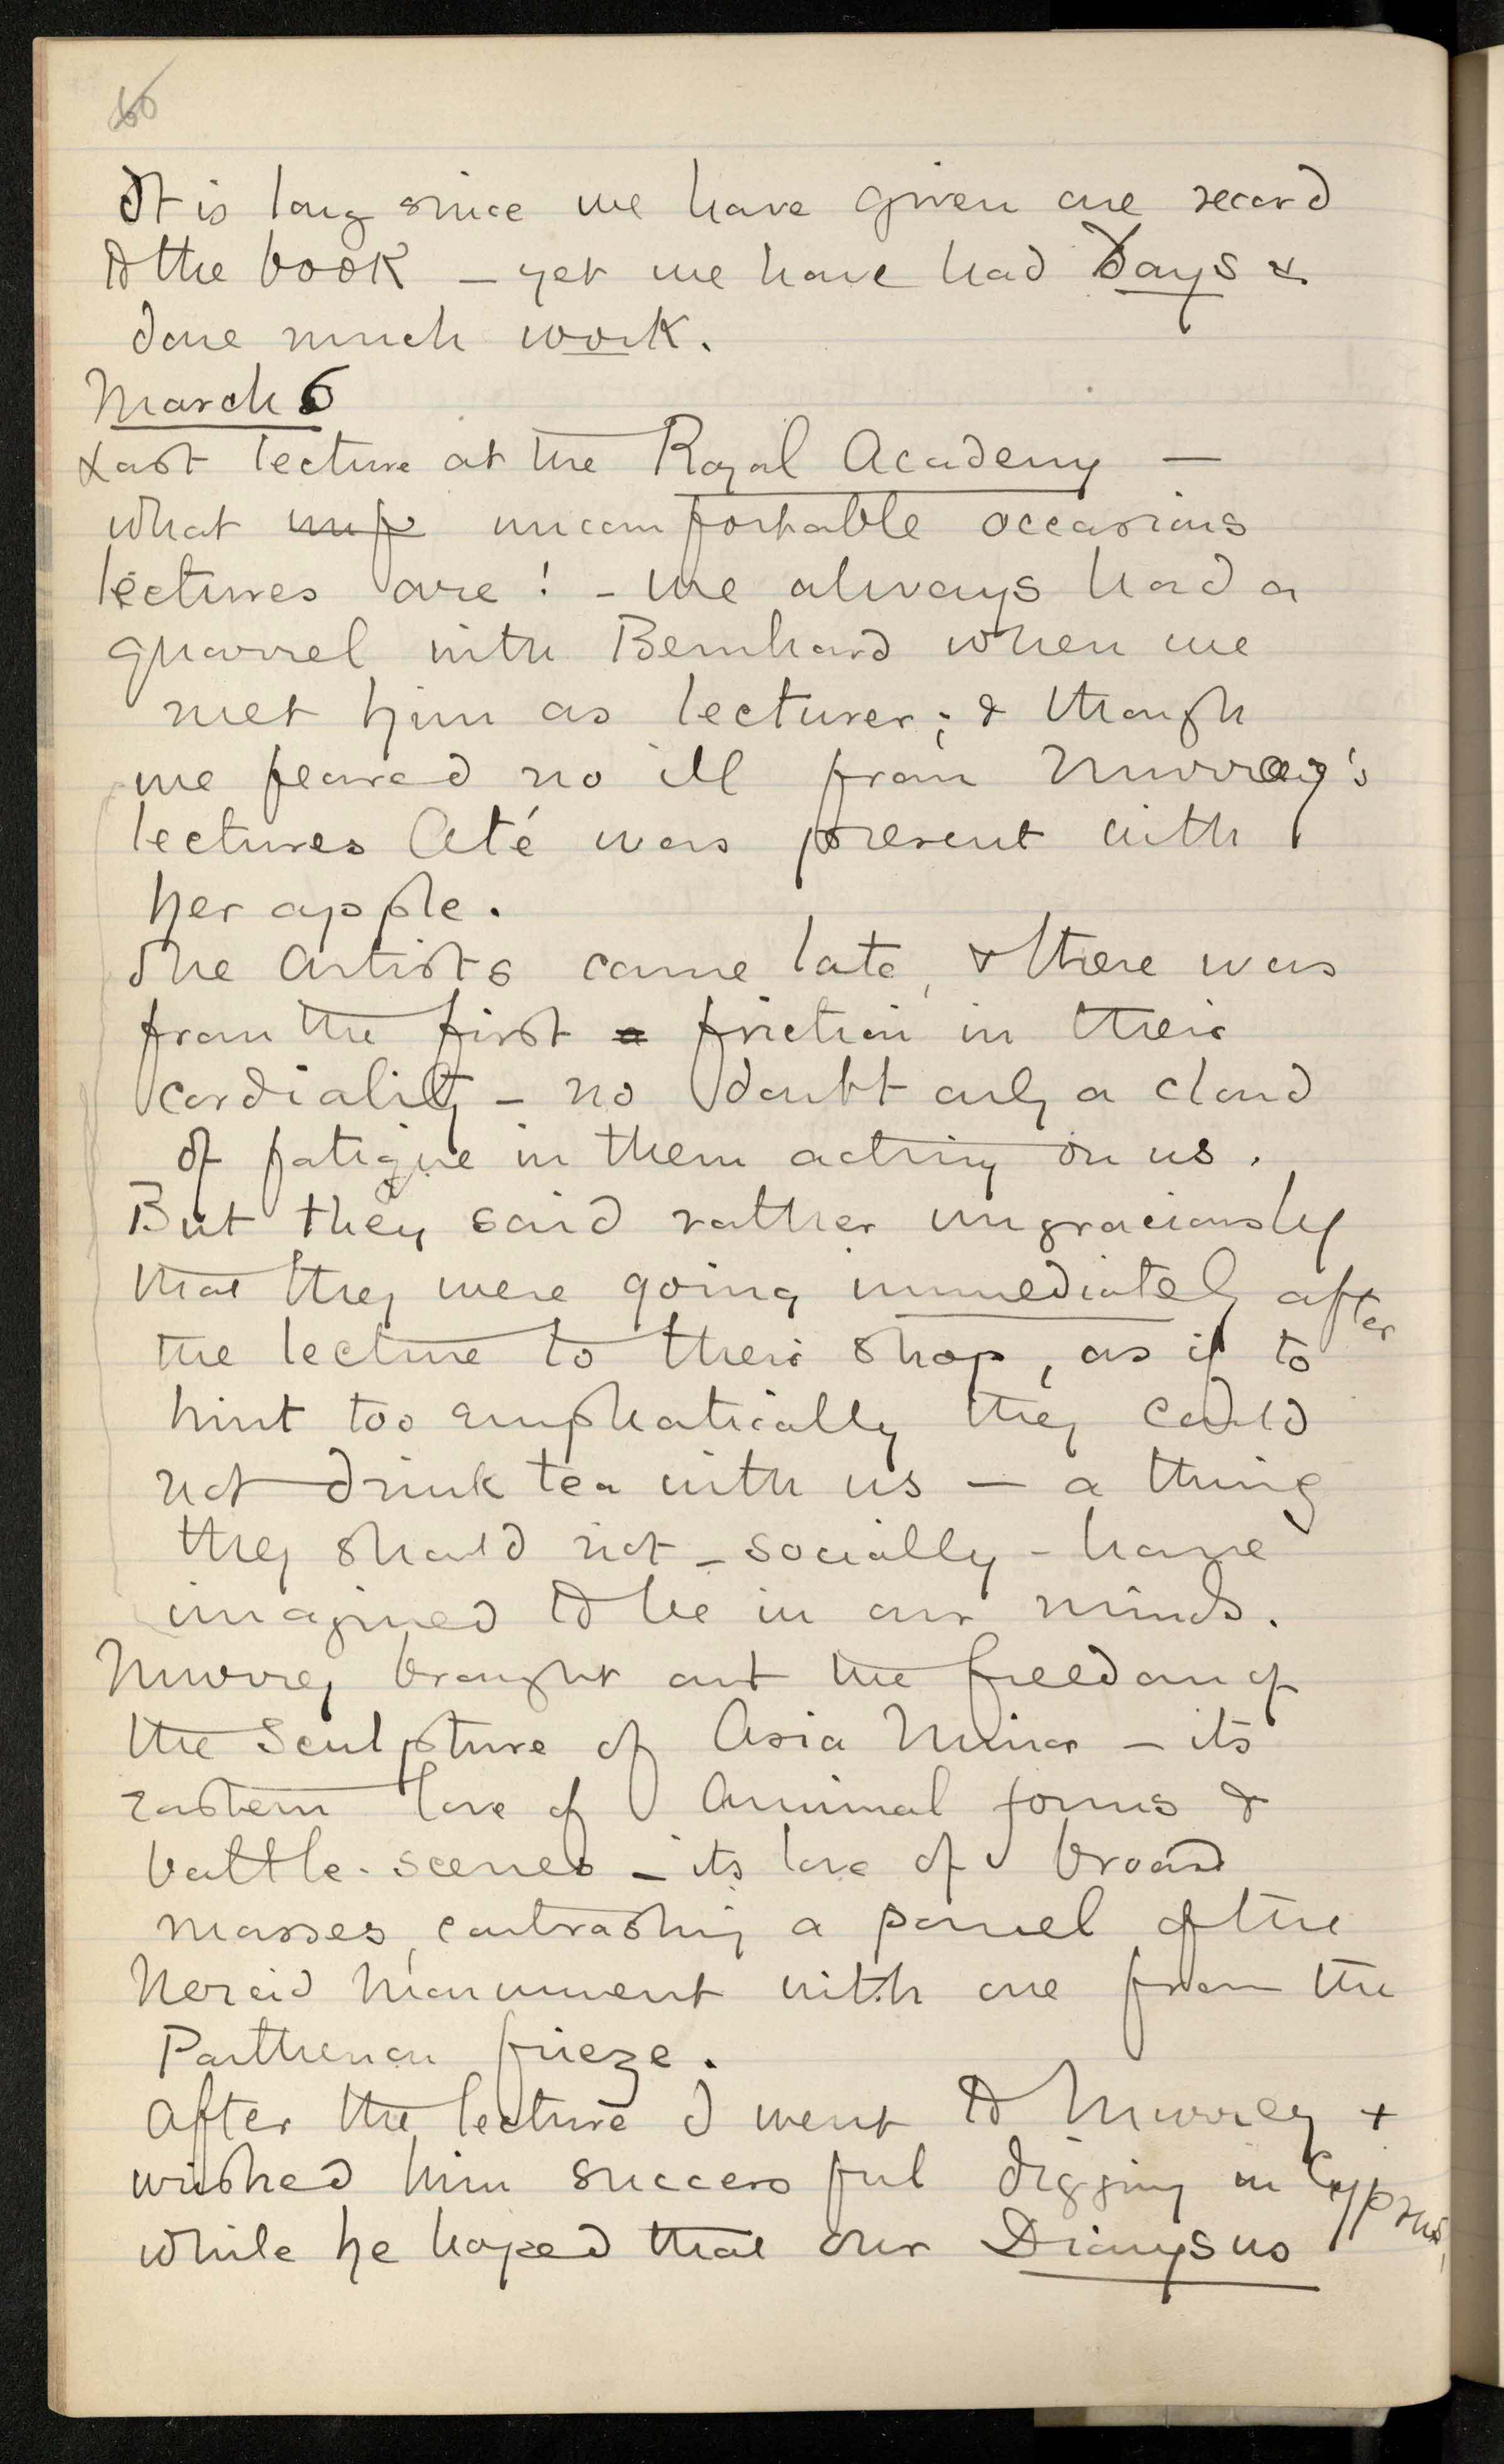 66
It is long since we have given one record
to the book – yet we have had Days &
done much work.
March 6
Last lecture at the Royal Academy –
what unf uncomfortable occasions
lectures are! – We always had a
quarrel with Bernhard when we
met him as lecturer; & though
we feared no ill from Murray's
lectures Até was present with
her apple.
The Artists came late, & there was
from the first a friction in their
cordiality – no doubt only a cloud
of fatigue in them acting on us.
But they said rather ungraciously
that they were going immediately after
the lecture to their shop, as if to
hint too emphatically they could
not drink tea with us – a thing
they should not – socially – have
imagined to be in our minds.
Murrey brought out the freedom of
the Sculpture of Asia Minor – its
eastern love of Animal forms &
battle-scenes – its love of broad
masses, contrasting a panel of the
Nereid Monument with one from the
Parthenon frieze.
After the lecture I went to Murrey +
wished him successful digging in Cyprus,
while he hoped that our Dionysus